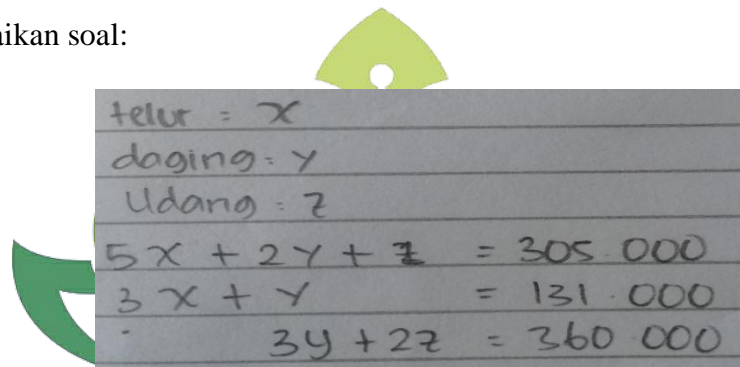 aikan soal:
telur = x
daging = y
Udang = z
5x + 2y + z = 305.000
3x + y = 131.000
3y + 2z = 360.000